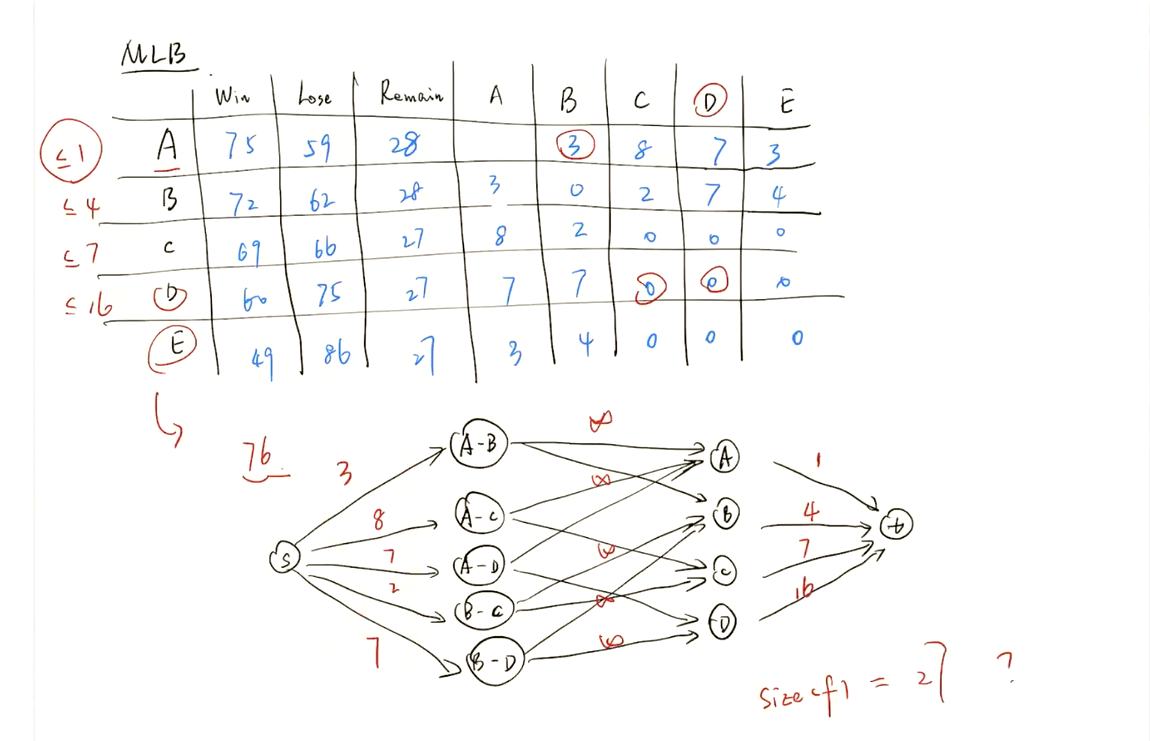 MLB
Win Lose Remain A B C D E
≤1 A 75 59 28 3 8 7 3
≤4 B 72 62 28 3 0 2 7 4
≤7 C 69 66 27 8 2 0 0 0
≤16 D 60 75 27 7 7 0 0 0
E 49 86 27 3 4 0 0 0
76
3 A-B ∞ A 1
8 A-C ∞ B 4
S 7 A-D ∞ C 7 t
2 B-C ∞ D 16
7 B-D ∞
size(f) = 27 ?